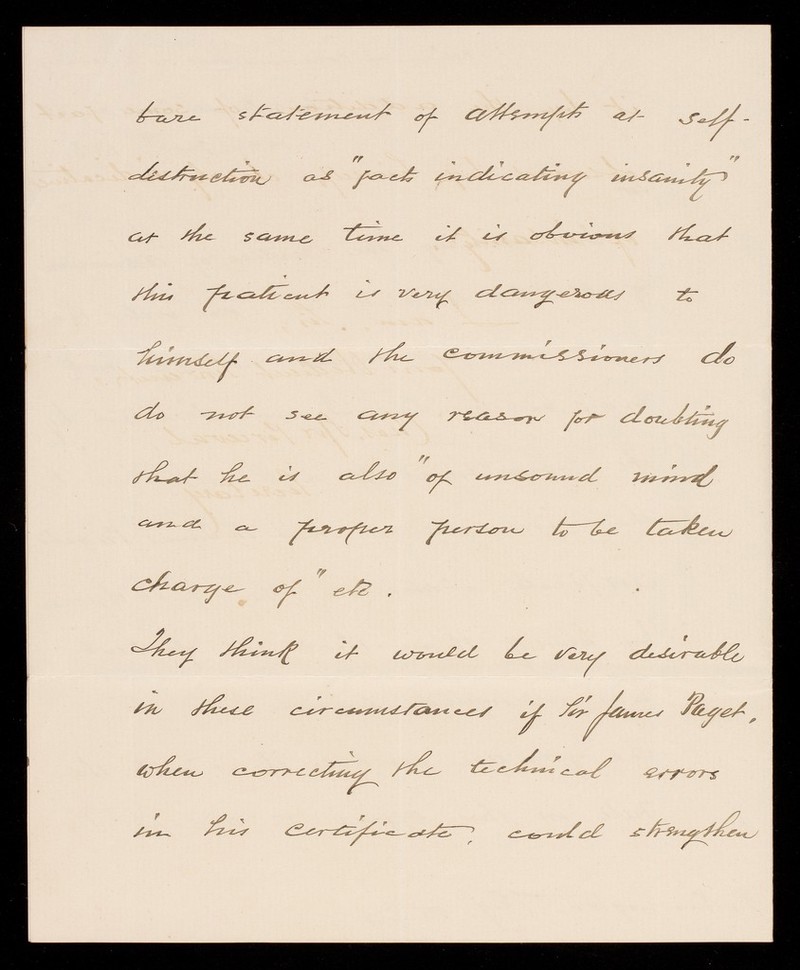 bare statement of attempts at self-
destruction as "facts indicating insanity"
at the same time it is obvious that
this patient is very dangerous to
himself and the commissioners do
do not see any reason for doubting
that he is also "of unsound mind
and a proper person to be taken
charge of" etc.
They think it would be very desirable
in these circumstances if Sir James Paget,
when correcting the technical errors
in his certificate, could strengthen